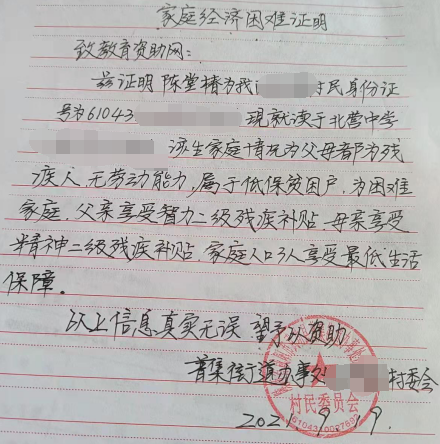 家庭经济困难证明
致教育资助网:
兹证明 陈堂椿为我 村民身份证
号为61043 现就读于北营中学
该生家庭情况为父母都为残
疾人,无劳动能力,属于低保贫困户,为困难
家庭,父亲享受智力二级残疾补贴,母亲享受
精神二级残疾补贴,家庭人口3人享受最低生活
保障。
以上信息真实无误 望予以资助
街道办事处 村委会
村民委员会
2021.9.9